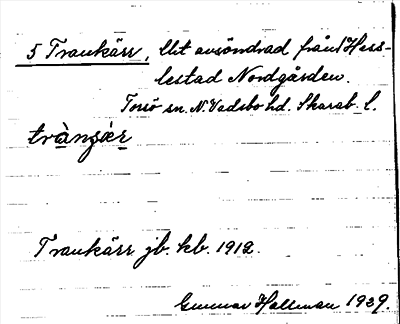 5 Trankärr, Ut avsöndrad från Hass-
lestad Nordgården.
Torsö sn. N. Vadsbo hd. Skarab. l.
Trankärr jb. kb. 1912.
Gunnar Hallman 1939